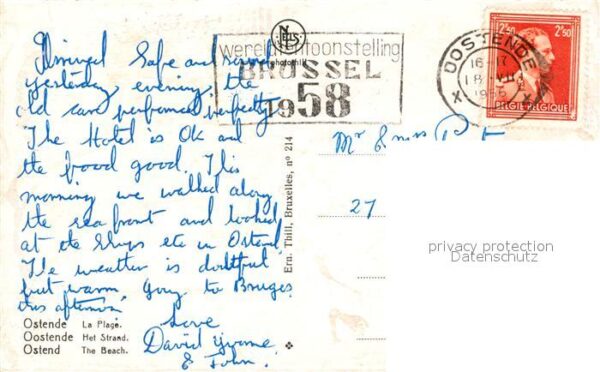 Arrived Safe and sound
yesterday evening, the
old car performed perfectly.
The Hotel is Ok and
the food good. This
morning we walked along
the sea front and looked
at the Ships etc in Ostend.
The weather is doubtful
but warm. Going to Bruges
this afternoon.
Love
David Yvonne
& John.
Ostende La Plage.
Oostende Het Strand.
Ostend The Beach.
Ern. Thill, Bruxelles, nº 214
NELS
photothill
wereldtentoonstelling
BRUSSEL
1958
OOSTENDE
16-17
18 VII
195
X X
2F50 2F50
BELGIE-BELGIQUE
Mr & miss
27
privacy protection
Datenschutz